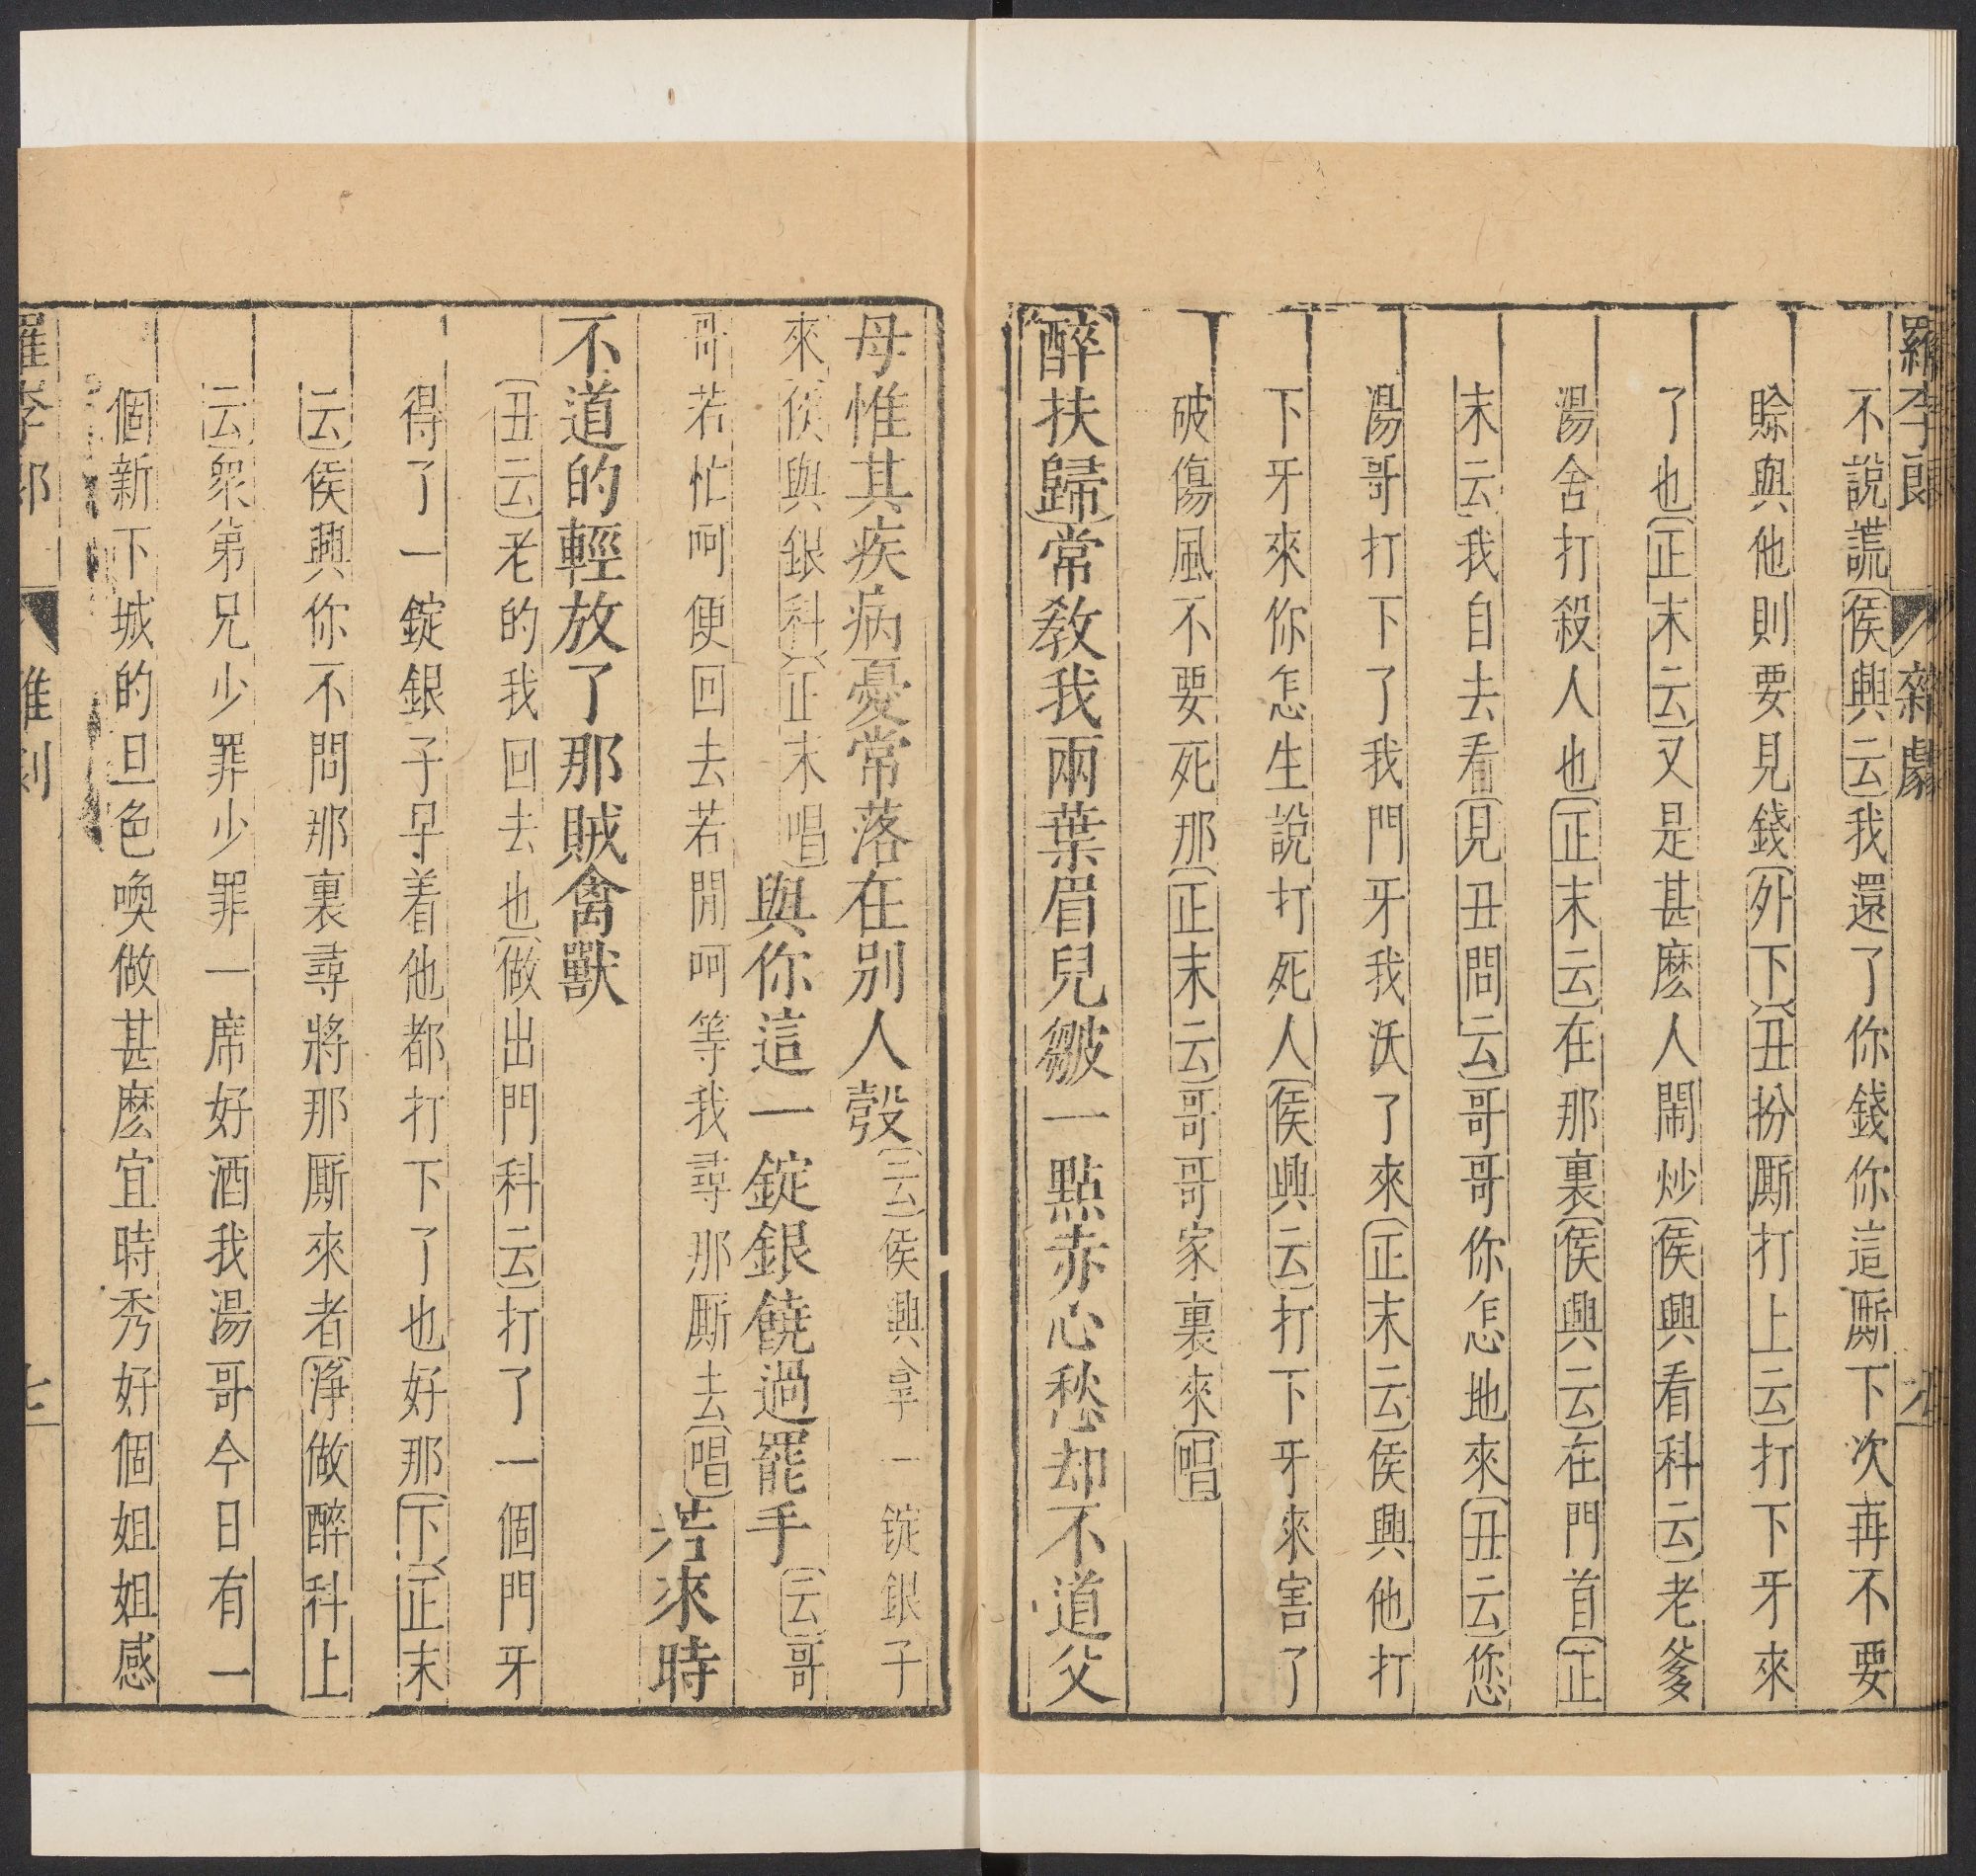 羅李郎 雜劇
不說謊侯興云我還了你錢你這厮下次再不要
賒與他則要見錢外下丑扮厮打上云打下牙來
了也正末云又是甚麽人鬧炒侯興看科云老爹
湯舍打殺人也正末云在那裏侯興云在門首正
末云我自去看見丑問云哥哥你怎地來丑云您
湯哥打下了我門牙我沃了來正末云侯興他打
下牙來你怎生說打死人侯興云打下牙來害了
破傷風不要死那正末云哥哥家裏來唱
醉扶歸常教我兩葉眉兒皺一點赤心愁却不道父
母惟其疾病憂常落在别人彀云侯興拿一錠銀子
來侯與銀科正末唱與你這一錠銀饒過罷手云哥
哥若忙呵便回去若閒呵等我尋那厮去唱若來時
不道的輕放了那賊禽獸
丑云老的我回去也做出門科云打了一個門牙
得了一錠銀子早着他都打下了也好那下正末
云侯興你不問那裏尋將那厮來者淨做醉科上
云衆弟兄少罪少罪一席好酒我湯哥今日有一
個新下城的旦色喚做甚麽宜時秀好個姐姐感